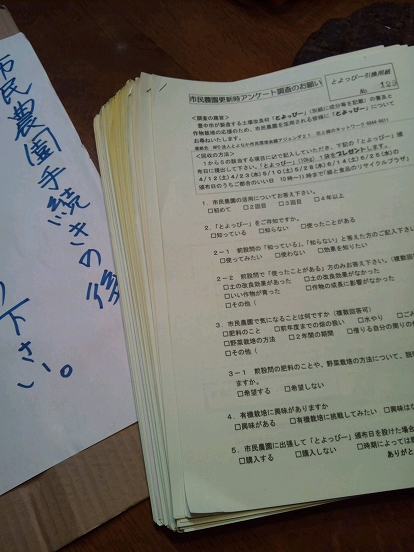 市民農園手続きの後
下さい。
市民農園更新時アンケート調査のお願い
とよっぴー引換用紙
No
<調査の趣旨>
豊中市が製造する土壌改良材「とよっぴー」(別紙に成分等を記載)の普及と
作物栽培の広獲のため、市民農園を活用される皆様に「とよっぴー」について
お尋ねいたします。
<回収の方法>
1から5の該当する項目に記入していただき、下記の「とよっぴー」頒
布日に提出して下さい。「とよっぴー」(10kg) 1袋をプレゼントします。
4/12(土) 4/23(水) 5/10(土) 5/28(水) 6/14(土) 6/25(水)の
頒布日のうちご都合のいい日 10時~11時まで(緑と食品のリサイクルプラザ)
1.市民農園の活用についてお答え下さい。
□初めて □2回目 □3回目 □4年以上
2.「とよっぴー」をご存知ですか。
□知っている □知らない □使ったことがある
2-1 前設問の「知っている」、「知らない」と答えた方のご記入下さい
□使ってみたい □使わない □効果を知りたい
2-2 前設問で「使ったことがある」方のみお答え下さい。(複数回
□土の改良効果があった □土の改良効果がなかった
□いい作物が育った □作物の成長に影響がなかった
□その他(
3.市民農園で気になることは何ですか(複数回答可)
□肥料のこと □前年度までの畑の扱い □水やり □ごみ
□野菜栽培の方法 □2年間の期間 □借りる自分の周りの畑
□その他(
3-1 前設問の肥料のことや、野菜栽培の方法について、説
ますか。
□希望する □希望しない
4.有機栽培に興味がありますか
□興味がある □有機栽培に挑戦してみたい □興味はな
5.市民農園に出張して「とよっぴー」頒布日を設けた場合
□購入する □購入しない □時期によっては
ありがと